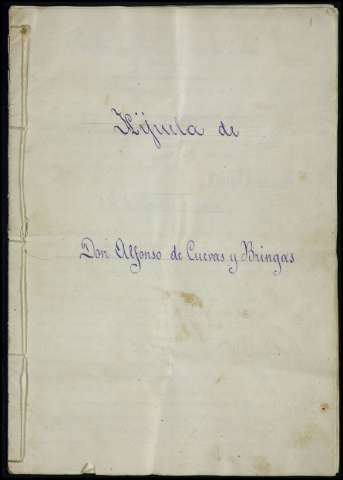 Hijuela de
Don Alfonso de Cuevas y Bringas